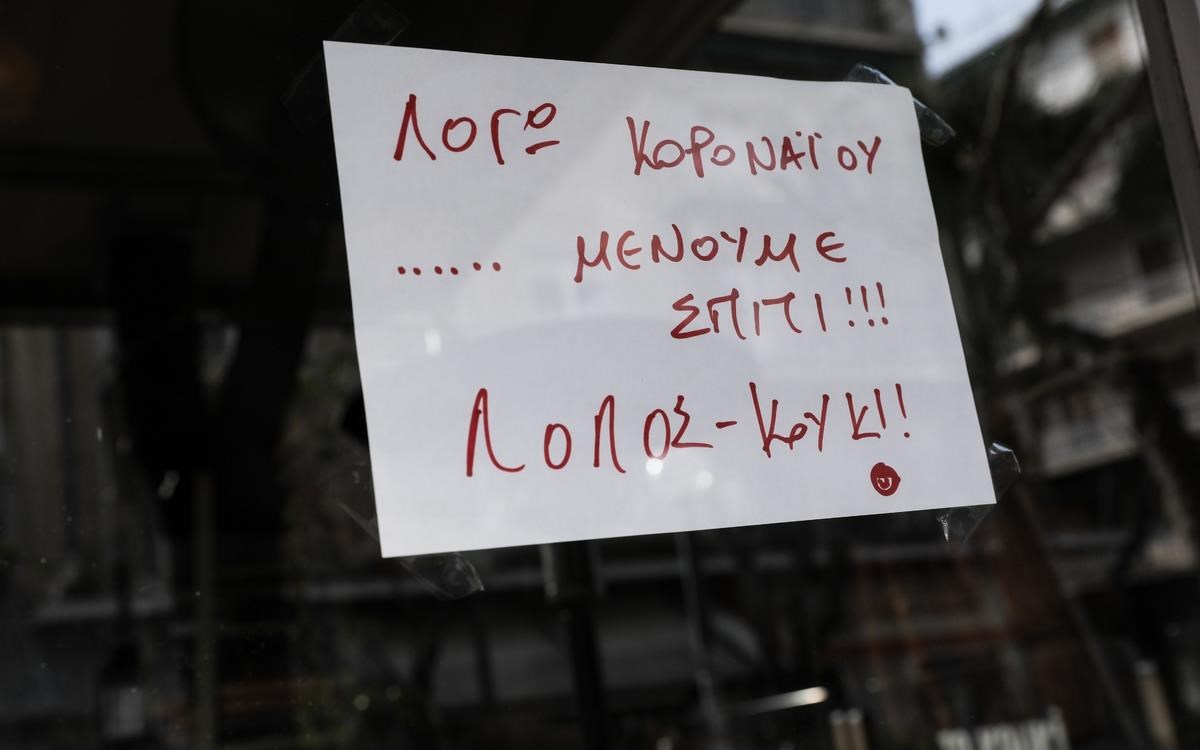 ΛΟΓΩ ΚΟΡΟΝΑΪΟΥ
...... ΜΕΝΟΥΜΕ
ΣΠΙΤΙ!!!
ΛΟΛΟΣ-ΚΟΥΚΙ!!